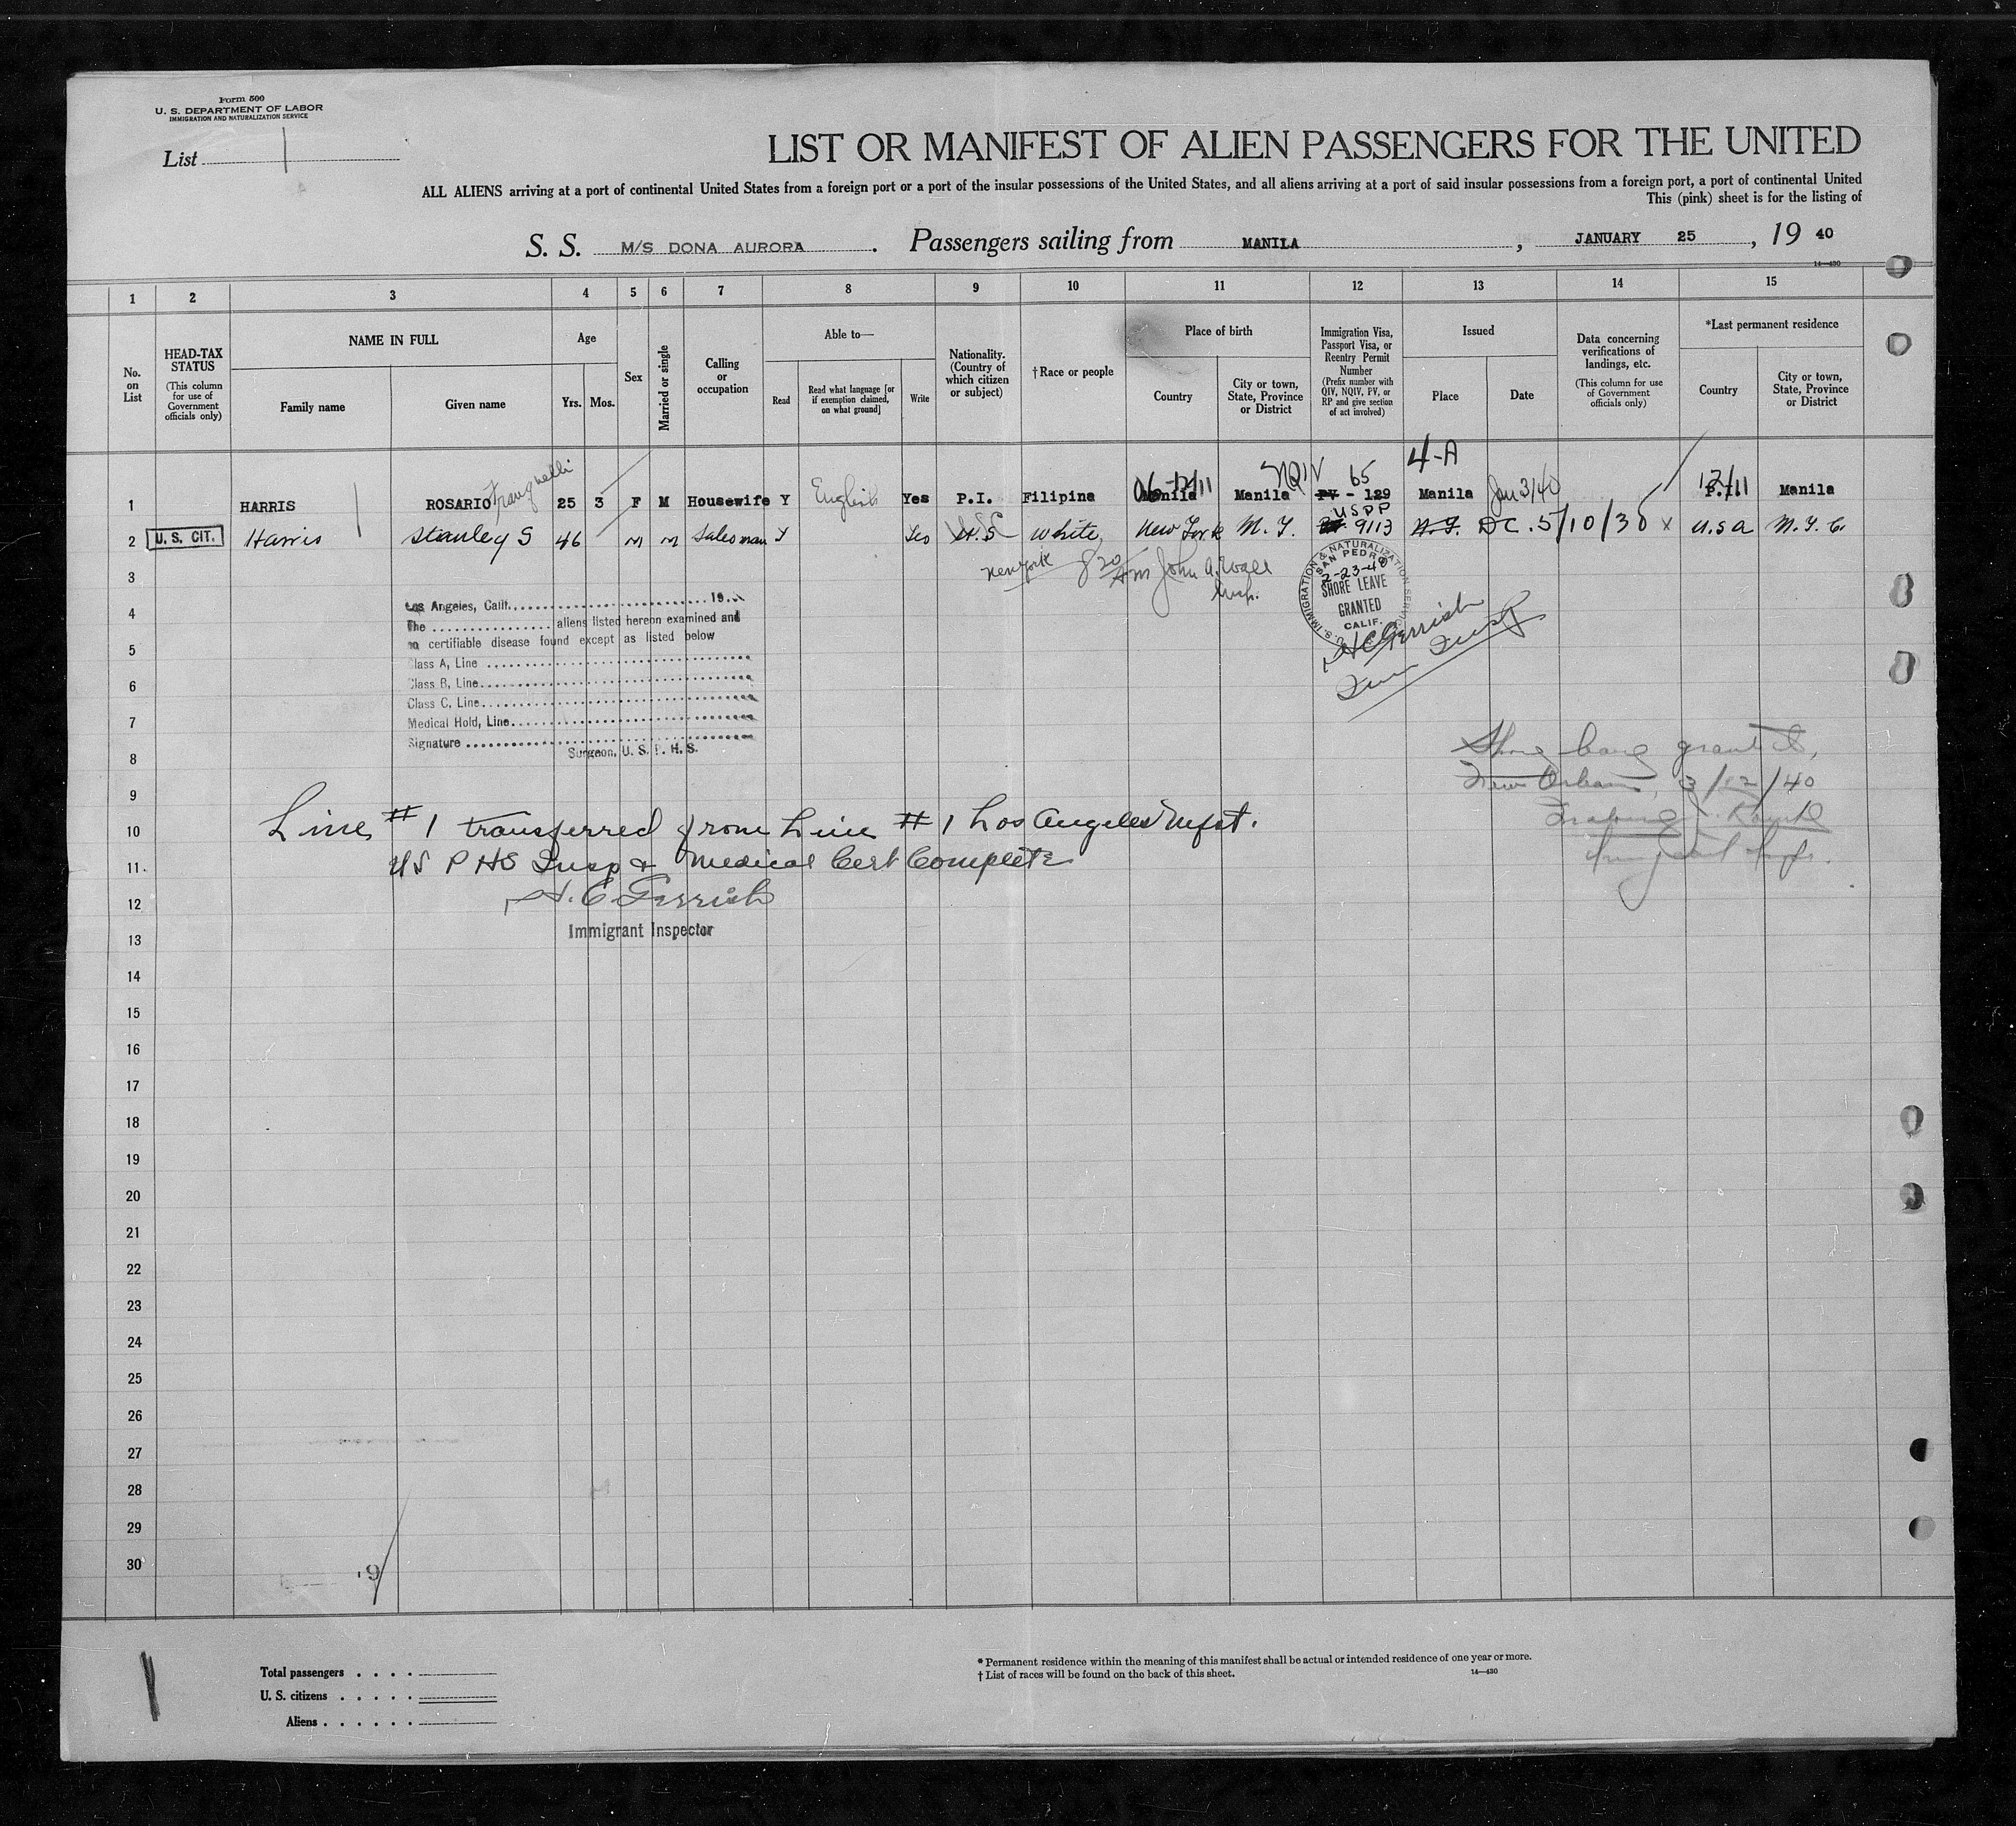 Form 500
U. S. DEPARTMENT OF LABOR
IMMIGRATION AND NATURALIZATION SERVICE
List 1
LIST OR MANIFEST OF ALIEN PASSENGERS FOR THE UNITED
ALL ALIENS arriving at a port of continental United States from a foreign port or a port of the insular possessions of the United States, and all aliens arriving at a port of said insular possessions from a foreign port, a port of continental United
This (pink) sheet is for the listing of
S. S. M/S DONA AURORA. Passengers sailing from MANILA, JANUARY 25, 19 40
14—430
1 2 3 4 5 6 7 8 9 10 11 12 13 14 15
No. on List
HEAD-TAX STATUS (This column for use of Government officials only)
NAME IN FULL
Family name
Given name
Age
Yrs. Mos.
Sex
Married or single
Calling or occupation
Able to—
Read
Read what language [or if exemption claimed, on what ground]
Write
Nationality. (Country of which citizen or subject)
†Race or people
Place of birth
Country
City or town, State, Province or District
Immigration Visa, Passport Visa, or Reentry Permit Number (Prefix number with QIV, NQIV, PV, or RP and give section of act involved)
Issued
Place
Date
Data concerning verifications of landings, etc. (This column for use of Government officials only)
*Last permanent residence
Country
City or town, State, Province or District
4-A
NQIV 65
1 HARRIS ROSARIO 25 3 F M Housewife Y English Yes P.I. Filipina Manila Manila PV - 129 Manila Jan 3/40 P.I. Manila
USPP
2 U. S. CIT. Harris Stanley S 46 M M Salesman Y Yes U.S. White New York N. Y. 9113 N.Y. DC. 5/10/30 x U.S.A N.Y.C.
3 New York 820 Am John A.
Insp.
U. S. IMMIGRATION & NATURALIZATION SERVICE
SAN PEDRO
2-23-40
SHORE LEAVE
GRANTED
CALIF.
H C Gerrish
Imm Insp
Los Angeles, Calif. 19
4 The aliens listed hereon examined and
no certifiable disease found except as listed below
5
Class A, Line
6 Class B, Line
Class C, Line
7 Medical Hold, Line
Signature
Surgeon, U. S. P. H. S.
8
Shore leave granted,
New Orleans, 3/12/40
9
10 Line #1 transferred from Line #1 Los Angeles Mfst.
11. US PHS Insp & Medical Cert Complete
12 H. C. Gerrish
Immigrant Inspector
13
14
15
16
17
18
19
20
21
22
23
24
25
26
27
28
29
30
Total passengers
U. S. citizens
Aliens
* Permanent residence within the meaning of this manifest shall be actual or intended residence of one year or more.
† List of races will be found on the back of this sheet.
14—430